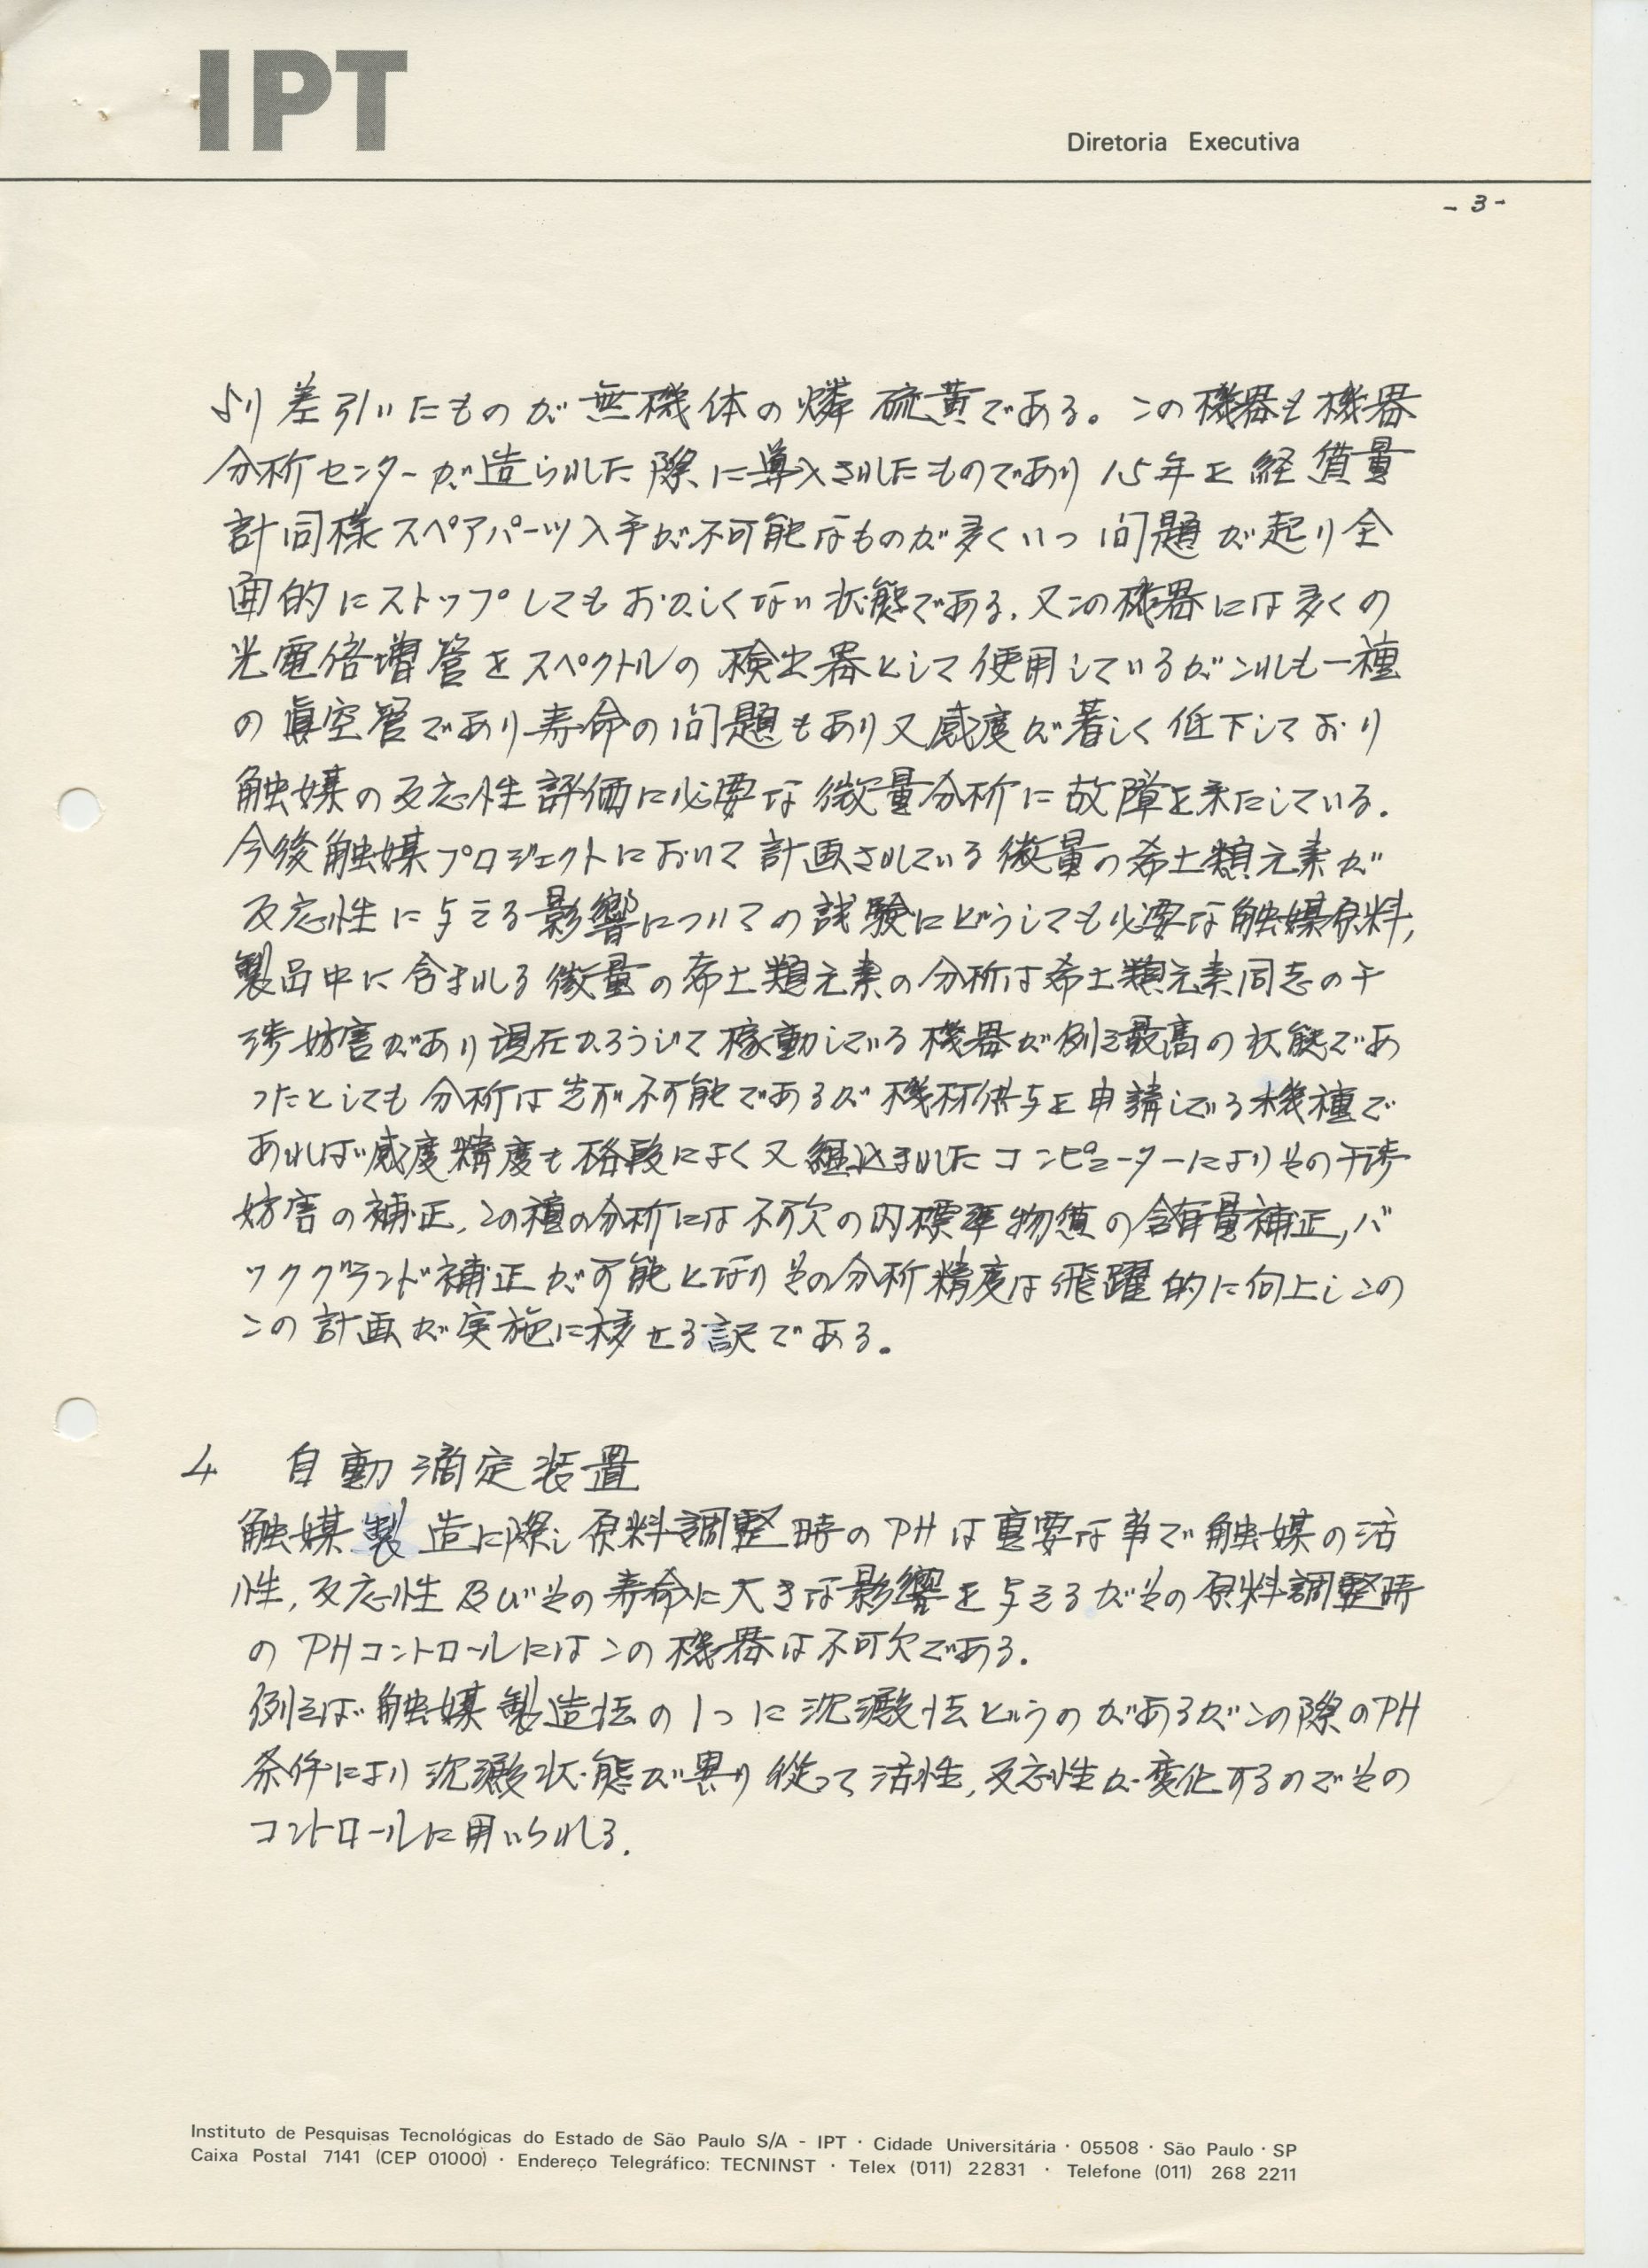 IPT
Diretoria Executiva
- 3 -
より差引いたものが無機体の燐 硫黄である。この機器も機器
分析センターが造られた際に導入されたものであり15年を経 質量
計同様スペアパーツ入手が不可能なものが多くいつ問題が起り全
面的にストップしてもおかしくない状態である.又この機器には多くの
光電倍増管をスペクトルの検出器として使用しているがこれも一種
の眞空管であり寿命の問題もあり又感度が著しく低下しており
触媒の反応性評価に必要な微量分析に故障を来たしている.
今後触媒プロジェクトにおいて計画されている微量の希土類元素が
反応性に与える影響についての試験にどうしても必要な触媒原料,
製品中に含まれる微量の希土類元素の分析は希土類元素同志の干
渉妨害があり現在かろうじて稼動している機器が例え最高の状態であ
ったとしても分析は先ず不可能であるが機材供与を申請している機種で
あれば感度精度も格段によく又組込まれたコンピューターによりその干渉
妨害の補正,この種の分析には不可欠の内標準物質の含有量補正,バ
ックグランド補正が可能となりその分析精度は飛躍的に向上しこの
この計画が実施に移せる訳である。
4 自動滴定装置
触媒製造に際し原料調整時のPHは重要な事で触媒の活
性,反応性及びその寿命に大きな影響を与えるがその原料調整時
のPHコントロールにはこの機器は不可欠である.
例えば触媒製造法の1つに沈澱法というのがあるがこの際のPH
条件により沈澱状態が異り従って活性,反応性が変化するのでその
コントロールに用いられる.
Instituto de Pesquisas Tecnológicas do Estado de São Paulo S/A - IPT · Cidade Universitária · 05508 · São Paulo · SP
Caixa Postal 7141 (CEP 01000) · Endereço Telegráfico: TECNINST · Telex (011) 22831 · Telefone (011) 268 2211